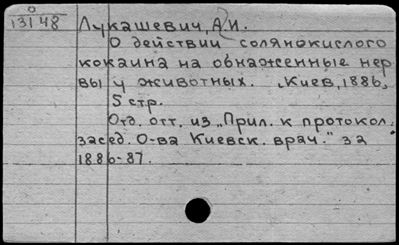 0
13148
Лукашевич, А. И.
О действии солянокислого
кокаина на обнаженные нер
вы у животных. Киев, 1886,
5 стр.
Отд. отт. из „Прил. к протокол.
засед. О-ва Киевск. врач." за
1886-87.